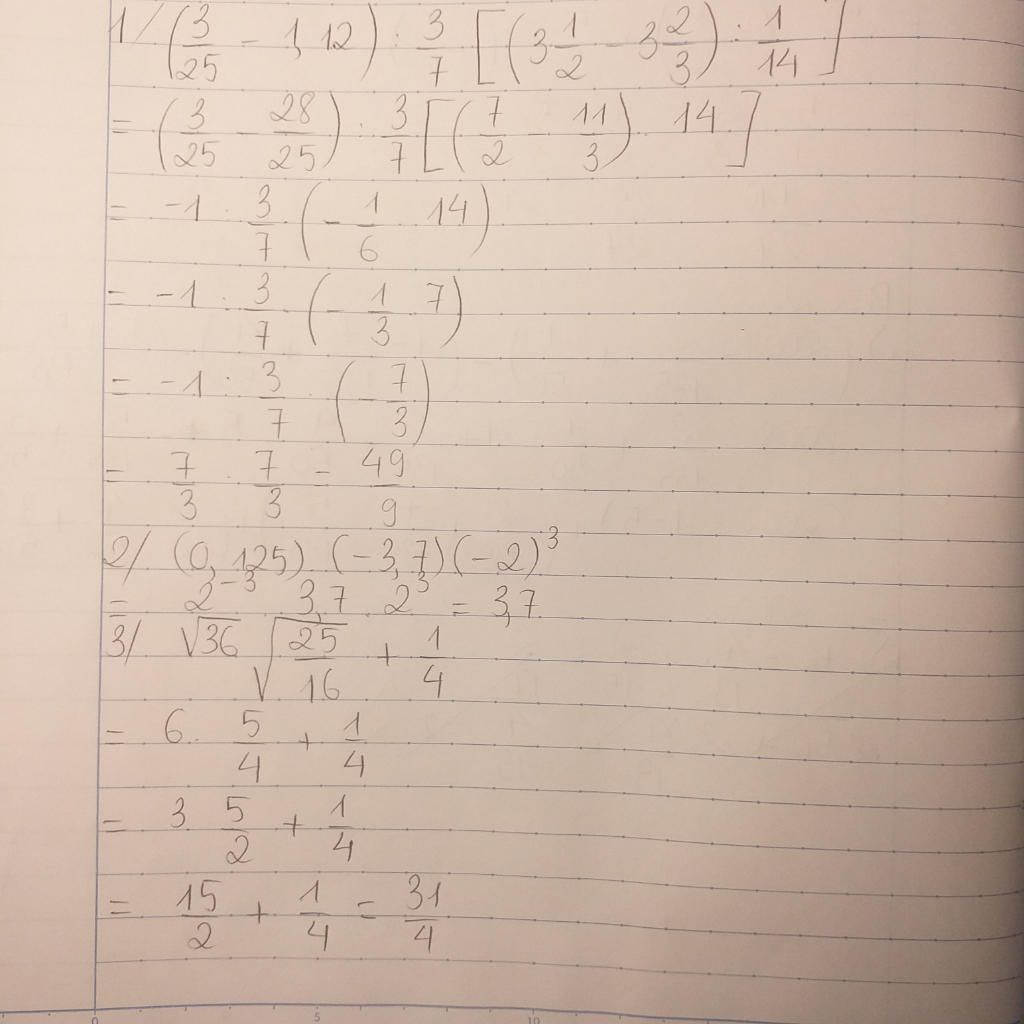 1/ (3/25 - 1,12) : 3/7 [(3 1/2 - 3 2/3) : 1/14]
= (3/25 - 28/25) : 3/7 [(7/2 - 11/3) . 14]
= -1 : 3/7 (-1/6 . 14)
= -1 : 3/7 (-1/3 . 7)
= -1 : 3/7 . (-7/3)
= 7/3 . 7/3 = 49/9
2/ (0,125) . (-3,7) (-2)^3
= 2^-3 . 3,7 . 2^3 = 3,7
3/ √36 √(25/16) + 1/4
= 6 . 5/4 + 1/4
= 3 . 5/2 + 1/4
= 15/2 + 1/4 = 31/4
0 5 10